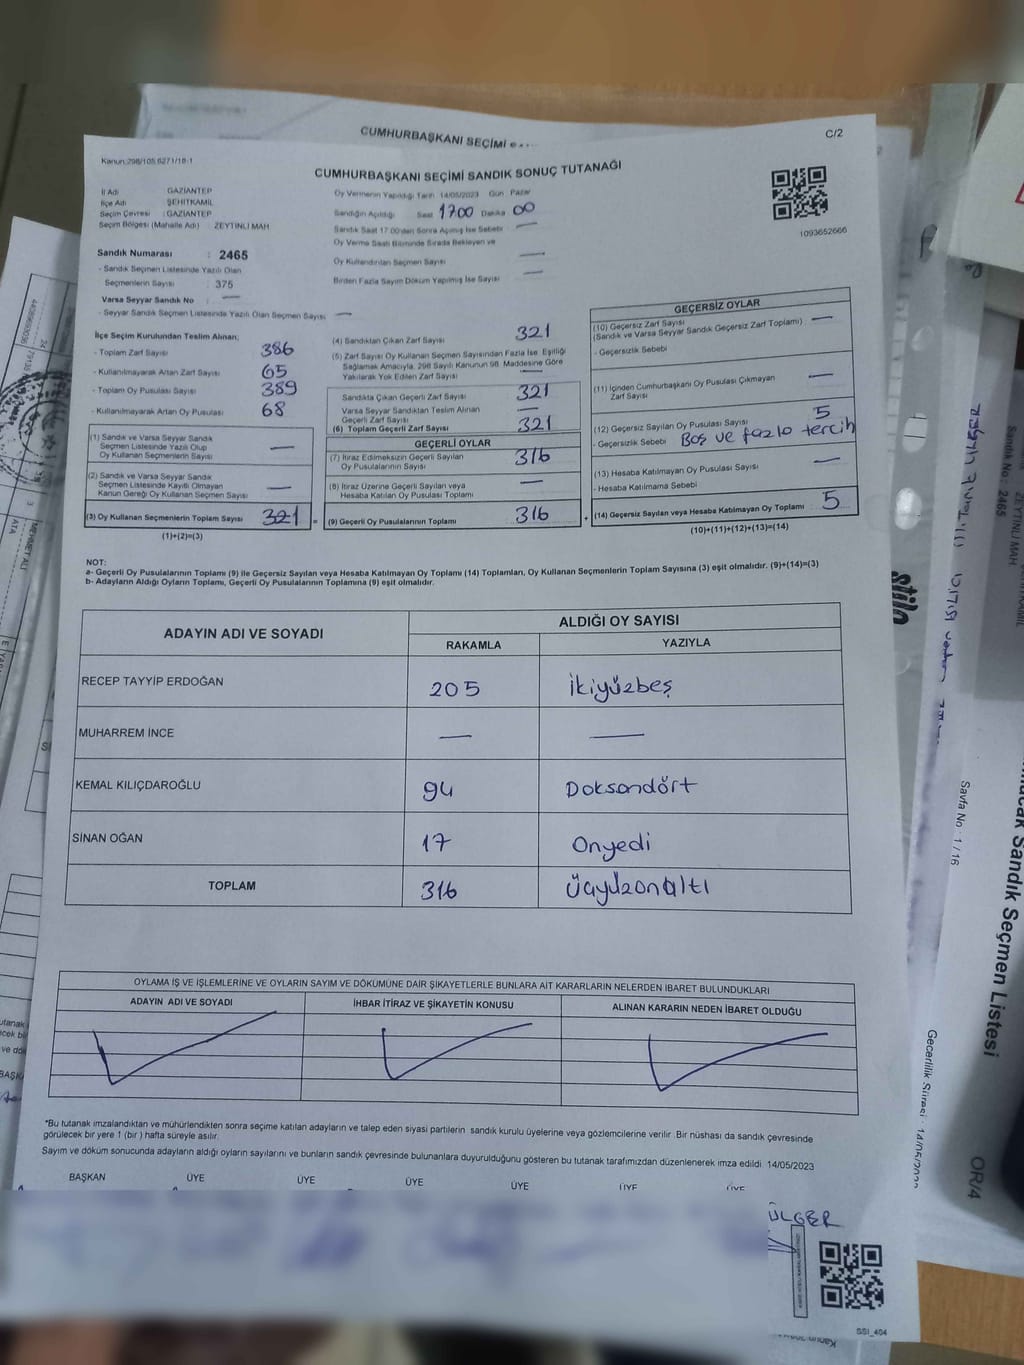 CUMHURBAŞKANI SEÇİMİ
C/2
Kanun:298/105,6271/18-1
CUMHURBAŞKANI SEÇİMİ SANDIK SONUÇ TUTANAĞI
İl Adı GAZİANTEP
İlçe Adı ŞEHİTKAMİL
Seçim Çevresi : GAZİANTEP
Seçim Bölgesi (Mahalle Adı) ZEYTİNLİ MAH
Oy Vermenin Yapıldığı Tarih 14/05/2023 Gün Pazar
Sandığın Açıldığı Saat 1700 Dakika 00
Sandık Saat 17.00'den Sonra Açılmış İse Sebebi —
Oy Verme Saati Bitiminde Sırada Bekleyen ve
Oy Kullandırılan Seçmen Sayısı —
Birden Fazla Sayım Döküm Yapılmış İse Sayısı —
1093652666
Sandık Numarası : 2465
- Sandık Seçmen Listesinde Yazılı Olan
Seçmenlerin Sayısı : 375
Varsa Seyyar Sandık No : —
- Seyyar Sandık Seçmen Listesinde Yazılı Olan Seçmen Sayısı —
İlçe Seçim Kurulundan Teslim Alınan;
- Toplam Zarf Sayısı 386
- Kullanılmayarak Artan Zarf Sayısı 65
- Toplam Oy Pusulası Sayısı 389
- Kullanılmayarak Artan Oy Pusulası 68
(1) Sandık ve Varsa Seyyar Sandık
Seçmen Listesinde Yazılı Olup
Oy Kullanan Seçmenlerin Sayısı —
(2) Sandık ve Varsa Seyyar Sandık
Seçmen Listesinde Kayıtlı Olmayan
Kanun Gereği Oy Kullanan Seçmen Sayısı —
(3) Oy Kullanan Seçmenlerin Toplam Sayısı 321 =
(1)+(2)=(3)
(4) Sandıktan Çıkan Zarf Sayısı 321
(5) Zarf Sayısı Oy Kullanan Seçmen Sayısından Fazla İse, Eşitliği
Sağlamak Amacıyla, 298 Sayılı Kanunun 98. Maddesine Göre
Yakılarak Yok Edilen Zarf Sayısı —
Sandıkta Çıkan Geçerli Zarf Sayısı 321
Varsa Seyyar Sandıktan Teslim Alınan
Geçerli Zarf Sayısı —
(6) Toplam Geçerli Zarf Sayısı 321
GEÇERLİ OYLAR
(7) İtiraz Edilmeksizin Geçerli Sayılan
Oy Pusulalarının Sayısı 316
(8) İtiraz Üzerine Geçerli Sayılan veya
Hesaba Katılan Oy Pusulası Toplamı —
(9) Geçerli Oy Pusulalarının Toplamı 316 +
GEÇERSİZ OYLAR
(10) Geçersiz Zarf Sayısı
(Sandık ve Varsa Seyyar Sandık Geçersiz Zarf Toplamı) —
- Geçersizlik Sebebi
(11) İçinden Cumhurbaşkanı Oy Pusulası Çıkmayan
Zarf Sayısı —
(12) Geçersiz Sayılan Oy Pusulası Sayısı 5
- Geçersizlik Sebebi Boş ve fazla tercih
(13) Hesaba Katılmayan Oy Pusulası Sayısı —
- Hesaba Katılmama Sebebi
(14) Geçersiz Sayılan veya Hesaba Katılmayan Oy Toplamı 5
(10)+(11)+(12)+(13)=(14)
NOT:
a- Geçerli Oy Pusulalarının Toplamı (9) ile Geçersiz Sayılan veya Hesaba Katılmayan Oy Toplamı (14) Toplamları, Oy Kullanan Seçmenlerin Toplam Sayısına (3) eşit olmalıdır. (9)+(14)=(3)
b- Adayların Aldığı Oyların Toplamı, Geçerli Oy Pusulalarının Toplamına (9) eşit olmalıdır.
ADAYIN ADI VE SOYADI
ALDIĞI OY SAYISI
RAKAMLA YAZIYLA
RECEP TAYYİP ERDOĞAN 205 İkiyüzbeş
MUHARREM İNCE — —
KEMAL KILIÇDAROĞLU 94 Doksandört
SİNAN OĞAN 17 Onyedi
TOPLAM 316 Üçyüzonaltı
OYLAMA İŞ VE İŞLEMLERİNE VE OYLARIN SAYIM VE DÖKÜMÜNE DAİR ŞİKAYETLERLE BUNLARA AİT KARARLARIN NELERDEN İBARET BULUNDUKLARI
ADAYIN ADI VE SOYADI İHBAR İTİRAZ VE ŞİKAYETİN KONUSU ALINAN KARARIN NEDEN İBARET OLDUĞU
*Bu tutanak imzalandıktan ve mühürlendikten sonra seçime katılan adayların ve talep eden siyasi partilerin sandık kurulu üyelerine veya gözlemcilerine verilir. Bir nüshası da sandık çevresinde
görülecek bir yere 1 (bir ) hafta süreyle asılır.
Sayım ve döküm sonucunda adayların aldığı oyların sayılarını ve bunların sandık çevresinde bulunanlara duyurulduğunu gösteren bu tutanak tarafımızdan düzenlenerek imza edildi. 14/05/2023
BAŞKAN ÜYE ÜYE ÜYE ÜYE ÜYE ÜYE
ÜLGER
SSI_404
ZEYTİNLİ MAH
Sandık No : 2465
stilo
Sayfa No : 1 / 16
Sandık Seçmen Listesi
Geçerlilik Süresi : 14/05/2023
OR/4
MEHMET ALİ
ATA